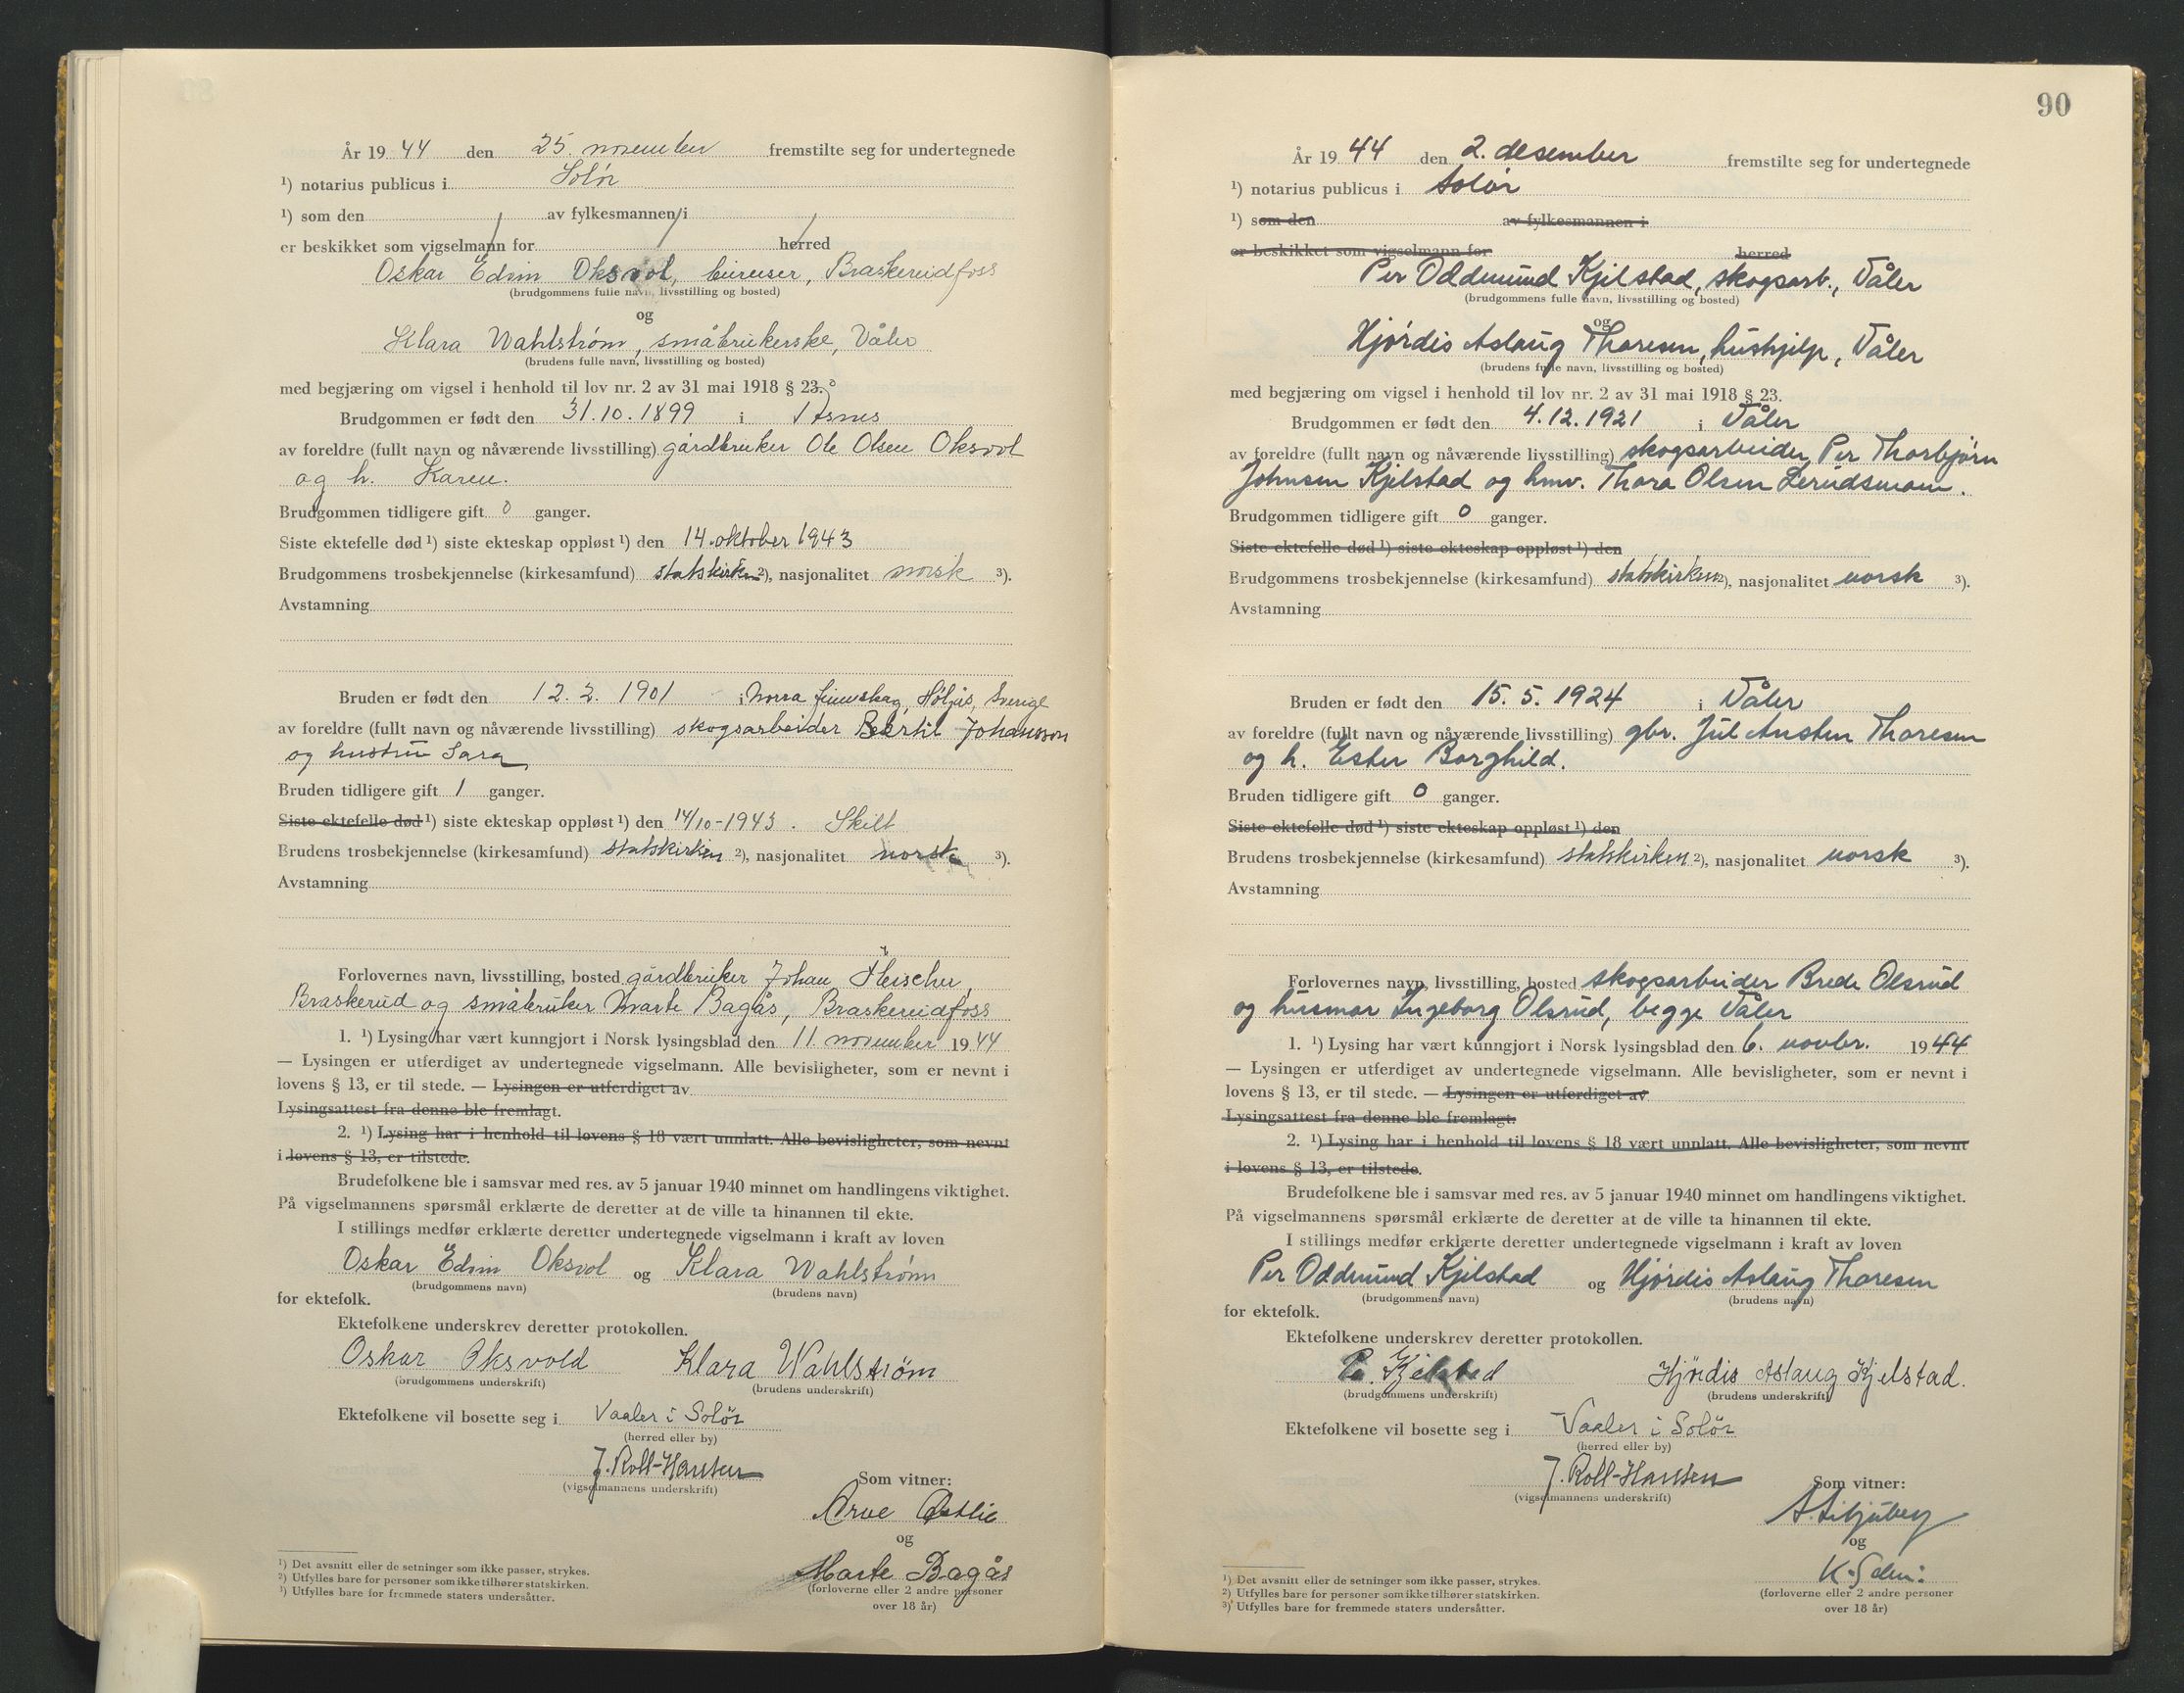 År 19 44 den 25. november fremstilte seg for undertegnede
¹) notarius publicus i Solør
¹) som den av fylkesmannen i
er beskikket som vigselmann for herred
Oskar Edvin Oksvol, Braskereidfoss
(brudgommens fulle navn, livsstilling og bosted)
og
Klara Wahlstrøm, småbrukerske, Våler
(brudens fulle navn, livsstilling og bosted)
med begjæring om vigsel i henhold til lov nr. 2 av 31 mai 1918 § 23.
Brudgommen er født den 31.10.1899 i Åsnes
av foreldre (fullt navn og nåværende livsstilling) gårdbruker Ole Olsen Oksvol
og h. Karen.
Brudgommen tidligere gift 0 ganger.
Siste ektefelle død ¹) siste ekteskap oppløst ¹) den 14. oktober 1943
Brudgommens trosbekjennelse (kirkesamfund) statskirken ²), nasjonalitet norsk ³).
Avstamning
Bruden er født den 12.2.1901 i Norra finnskog, Höljes, Sverige
av foreldre (fullt navn og nåværende livsstilling) skogsarbeider Bertil Johansson
og hustru Sara
Bruden tidligere gift 1 ganger.
Siste ektefelle død ¹) siste ekteskap oppløst ¹) den 14/10-1943. Skilt
Brudens trosbekjennelse (kirkesamfund) statskirken ²), nasjonalitet norsk ³).
Avstamning
Forlovernes navn, livsstilling, bosted gårdbruker Johan Fleischer,
Braskerud og småbruker Marte Bagås, Braskereidfoss
1. ¹) Lysing har vært kunngjort i Norsk lysingsblad den 11. november 19 44
— Lysingen er utferdiget av undertegnede vigselmann. Alle bevisligheter, som er nevnt i
lovens § 13, er til stede. — Lysingen er utferdiget av
Lysingsattest fra denne ble fremlagt.
2. ¹) Lysing har i henhold til lovens § 18 vært unnlatt. Alle bevisligheter, som nevnt
i lovens § 13, er tilstede.
Brudefolkene ble i samsvar med res. av 5 januar 1940 minnet om handlingens viktighet.
På vigselmannens spørsmål erklærte de deretter at de ville ta hinannen til ekte.
I stillings medfør erklærte deretter undertegnede vigselmann i kraft av loven
Oskar Edvin Oksvol og Klara Wahlstrøm
(brudgommens navn) (brudens navn)
for ektefolk.
Ektefolkene underskrev deretter protokollen.
Oskar Oksvold Klara Wahlstrøm
(brudgommens underskrift) (brudens underskrift)
Ektefolkene vil bosette seg i Vaaler i Solör
(herred eller by)
J. Roll-Hansen
(vigselmannens underskrift)
Som vitner:
Arve Østlie
og
Marte Bagås
(forloverne eller 2 andre personer
over 18 år)
¹) Det avsnitt eller de setninger som ikke passer, strykes.
²) Utfylles bare for personer som ikke tilhører statskirken.
³) Utfylles bare for fremmede staters undersåtter.
90
År 19 44 den 2. desember fremstilte seg for undertegnede
¹) notarius publicus i Solør
¹) som den av fylkesmannen i
er beskikket som vigselmann for herred
Per Oddmund Kjelstad, skogsarb., Våler
(brudgommens fulle navn, livsstilling og bosted)
og
Hjørdis Aslaug Thoresen, hushjelp, Våler
(brudens fulle navn, livsstilling og bosted)
med begjæring om vigsel i henhold til lov nr. 2 av 31 mai 1918 § 23.
Brudgommen er født den 4.12.1921 i Våler
av foreldre (fullt navn og nåværende livsstilling) skogsarbeider Per Thorbjørn
Johnsen Kjelstad og hmv. Thora Olsen Lerudsmoen.
Brudgommen tidligere gift 0 ganger.
Siste ektefelle død ¹) siste ekteskap oppløst ¹) den
Brudgommens trosbekjennelse (kirkesamfund) statskirken ²), nasjonalitet norsk ³).
Avstamning
Bruden er født den 15.5.1924 i Våler
av foreldre (fullt navn og nåværende livsstilling) gbr. Jul Austen Thoresen
og h. Ester Borghild.
Bruden tidligere gift 0 ganger.
Siste ektefelle død ¹) siste ekteskap oppløst ¹) den
Brudens trosbekjennelse (kirkesamfund) statskirken ²), nasjonalitet norsk ³).
Avstamning
Forlovernes navn, livsstilling, bosted skogsarbeider Brede Olsrud
og husmor Ingeborg Olsrud, begge Våler
1. ¹) Lysing har vært kunngjort i Norsk lysingsblad den 6. novbr. 19 44
— Lysingen er utferdiget av undertegnede vigselmann. Alle bevisligheter, som er nevnt i
lovens § 13, er til stede. — Lysingen er utferdiget av
Lysingsattest fra denne ble fremlagt.
2. ¹) Lysing har i henhold til lovens § 18 vært unnlatt. Alle bevisligheter, som nevnt
i lovens § 13, er tilstede.
Brudefolkene ble i samsvar med res. av 5 januar 1940 minnet om handlingens viktighet.
På vigselmannens spørsmål erklærte de deretter at de ville ta hinannen til ekte.
I stillings medfør erklærte deretter undertegnede vigselmann i kraft av loven
Per Oddmund Kjelstad og Hjørdis Aslaug Thoresen
(brudgommens navn) (brudens navn)
for ektefolk.
Ektefolkene underskrev deretter protokollen.
Per Kjelstad Hjørdis Aslaug Kjelstad.
(brudgommens underskrift) (brudens underskrift)
Ektefolkene vil bosette seg i Vaaler i Solör
(herred eller by)
J. Roll-Hansen
(vigselmannens underskrift)
Som vitner:
og
(forloverne eller 2 andre personer
over 18 år)
¹) Det avsnitt eller de setninger som ikke passer, strykes.
²) Utfylles bare for personer som ikke tilhører statskirken.
³) Utfylles bare for fremmede staters undersåtter.